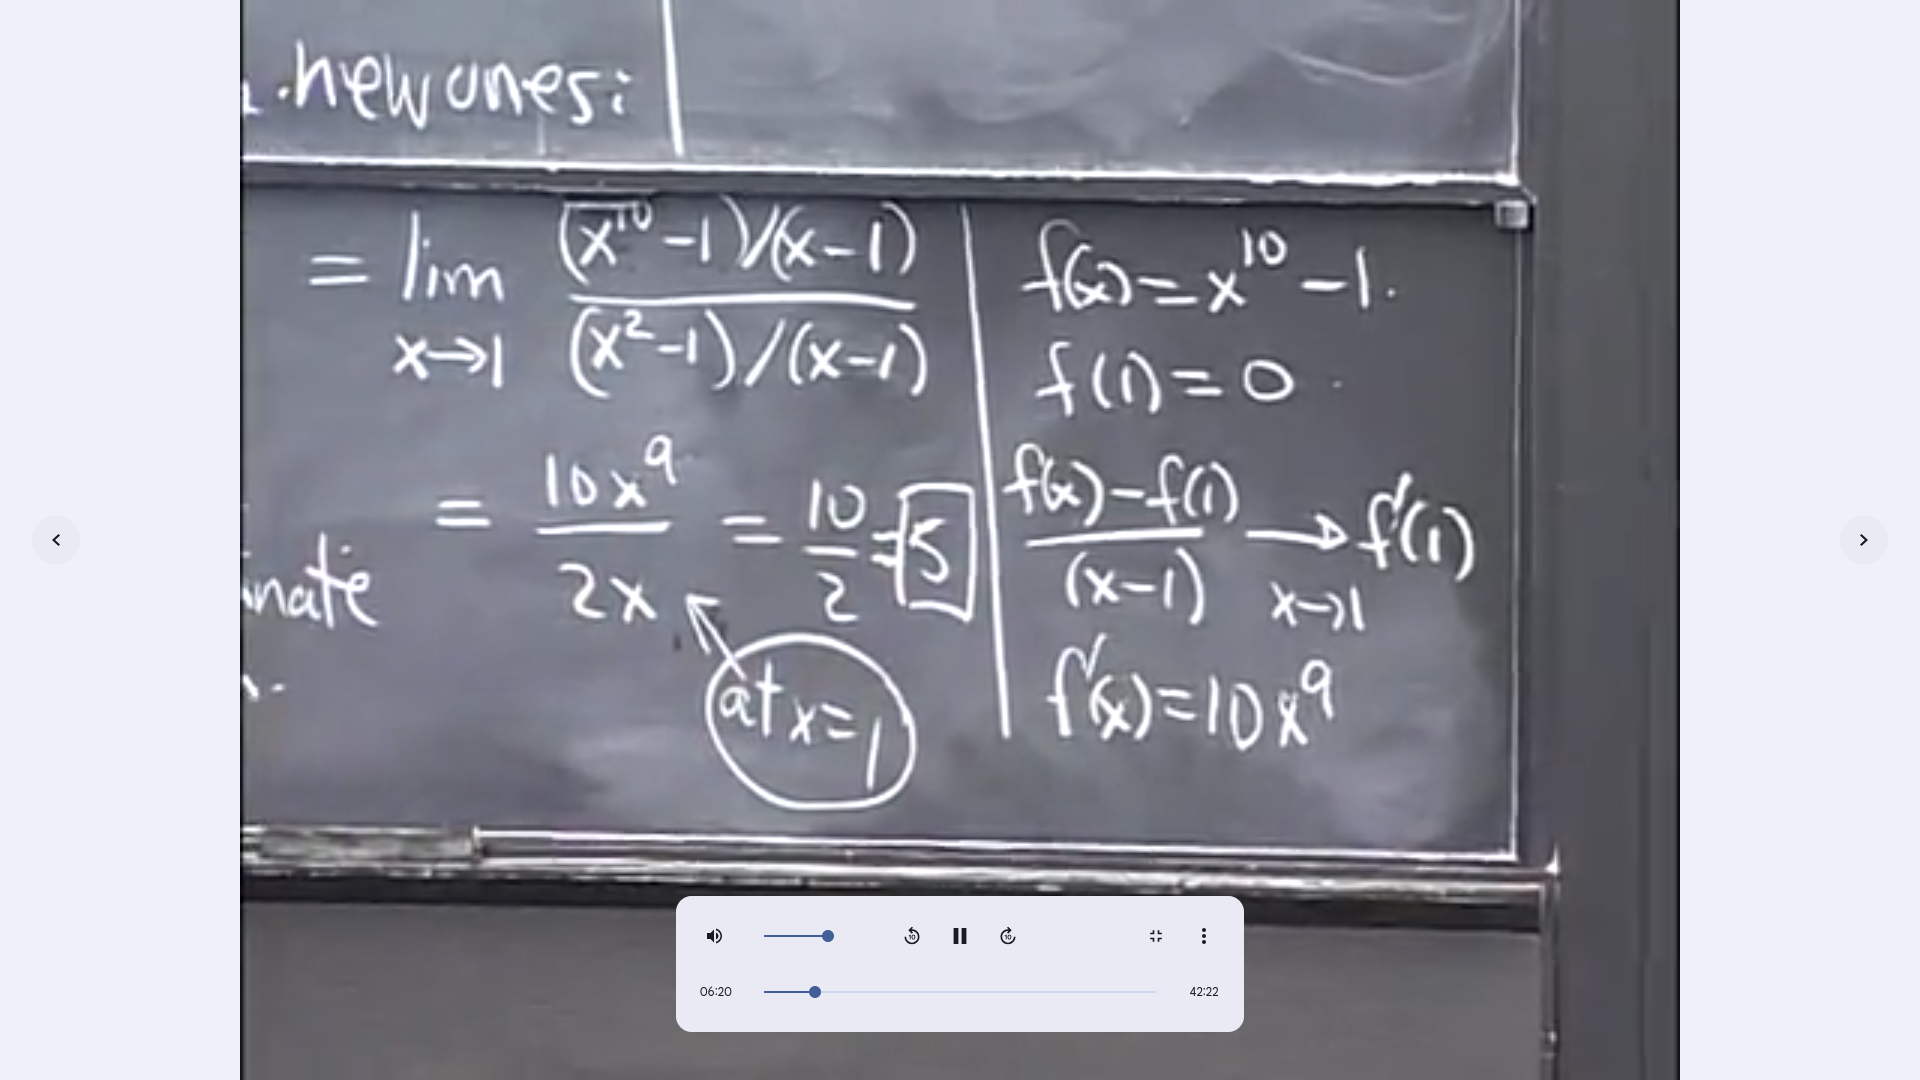 . new ones:
= lim x→1 ((x^10 - 1)/(x-1)) / ((x^2-1)/(x-1))
= 10x^9 / 2x = 10/2 = 5
at x=1
f(x) = x^10 - 1.
f(1) = 0
(f(x) - f(1)) / (x-1) → f'(1)
x→1
f'(x) = 10x^9
06:20
42:22